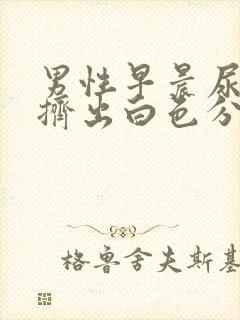 男性早晨尿
擠出白色分
格鲁舍夫斯基